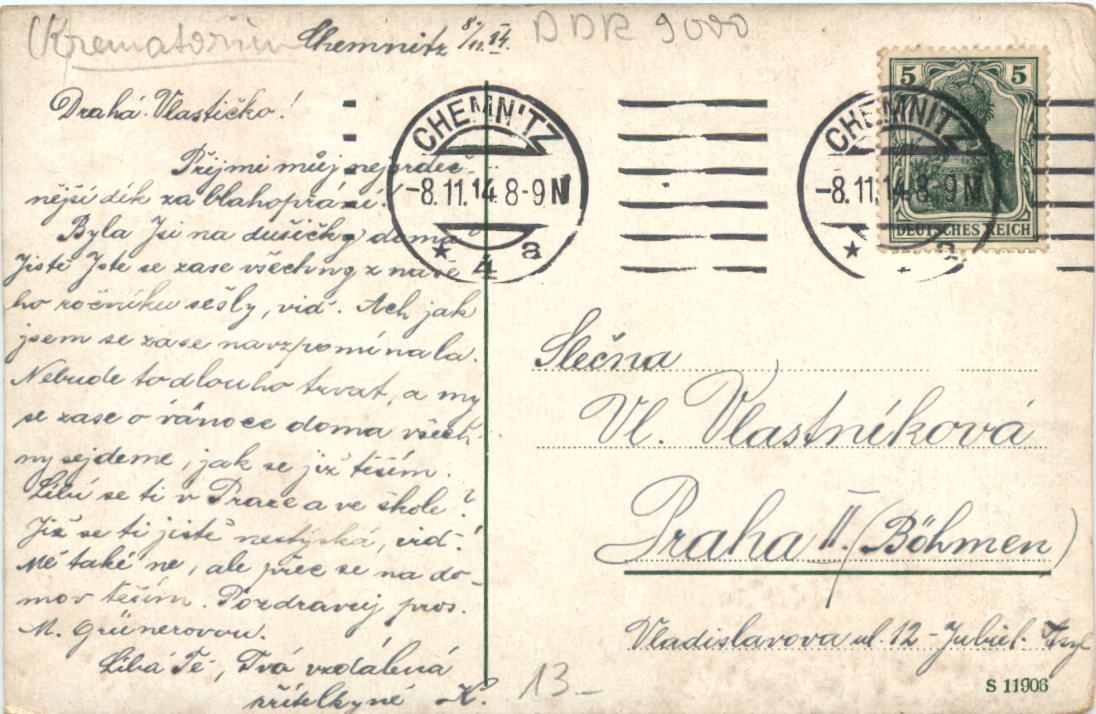 Krematorium
Chemnitz 8/11. 14.
DDR 9000
Drahá Vlastičko!
Přijmi můj nejsrdeč-
nější dík za blahopřání.
Byla Jsi na dušičky doma?
Jistě Jste se zase všechny z naše-
ho ročníku sešly, viď. Ach jak
jsem se zase navzpomínala.
Nebude to dlouho trvat, a my
se zase o vánoce doma všech-
ny sejdeme, jak se již těším.
Líbí se ti v Praze a ve škole?
Již se ti jistě nestýská, viď!
Mě také ne, ale přec se na do-
mov těším. Pozdravuj pros.
M. Grünerovou.
Líbá Tě, Tvá vzdálená
přítelkyně K.
CHEMNITZ
-8.11.14. 8-9 N
* 4 a
CHEMNITZ
-8.11.14. 8-9 N
5 5
DEUTSCHES REICH
Slečna
Vl. Vlastníková
Praha II. (Böhmen)
Vladislavova ul. 12 - Jubiel. Asyl
13.-
S 11906